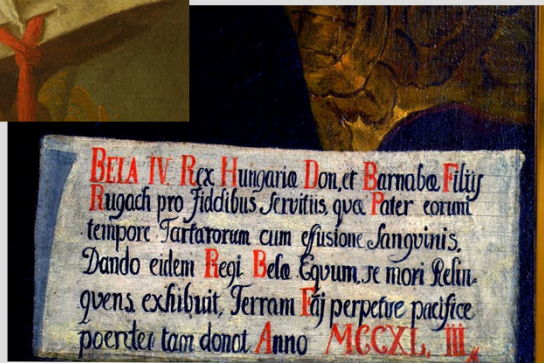 BELA IV. Rex Hungariæ Don, et Barnabæ Filijs
Rugach pro fiddibus servitiis, quæ Pater eorum
tempore Tartarorum cum effusione Sangvinis.
Dando eidem Regi Belæ Eqvum, se mori Relin-
qvens exhibuit, Terram Faj perpetuæ pacifice
poenter tam donat Anno MCCXL III.